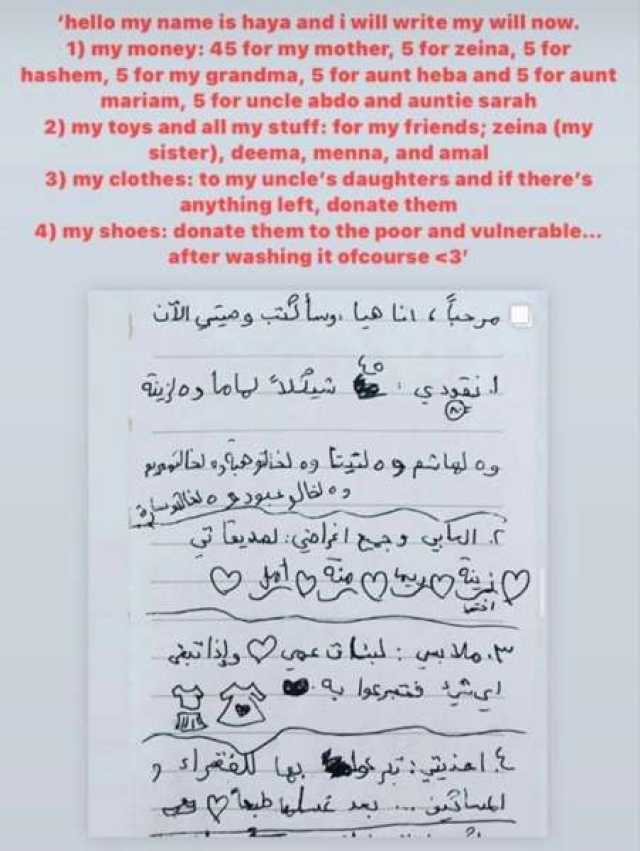 ‘hello my name is haya and i will write my will now.
1) my money: 45 for my mother, 5 for zeina, 5 for
hashem, 5 for my grandma, 5 for aunt heba and 5 for aunt
mariam, 5 for uncle abdo and auntie sarah
2) my toys and all my stuff: for my friends; zeina (my
sister), deema, menna, and amal
3) my clothes: to my uncle’s daughters and if there’s
anything left, donate them
4) my shoes: donate them to the poor and vulnerable...
after washing it ofcourse <3’
مرحباً، انا هيا، وسأكتب وصيتي الآن
٤٥
١. نقودي : شيكلاً لماما و٥ لزينة
٨٠
و٥ لهاشم و٥ لتيتا و٥ لخالتو هبة و٥ لخالتو مريم
و٥ لخالو عبود و٥ لخالتو سارة
٢. العابي وجميع اغراضي: لصديقاتي
زينة ♡ ريما ♡ منة ♡ أمل ♡
اختي
٣. ملابسي : لبنات عمي ♡ وإذا تبقى
اي شيء فتبرعوا به.
٤. احذيتي: تبرعوا بها للفقراء و
المساكين ... بعد غسلها طبعاً ♡